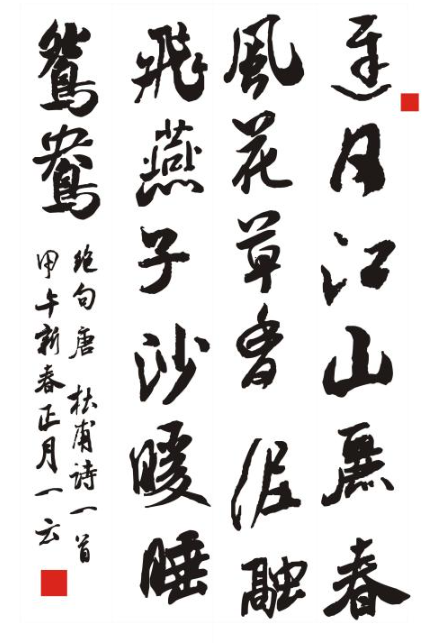 遲日江山麗春
風花草香泥融
飛燕子沙暖睡
鴛鴦
絕句唐 杜甫詩一首
甲午新春正月一云